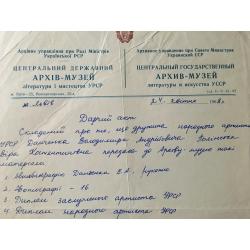 Архівне управління при Раді Міністрів
Української РСР
Архивное управление при Совете Министров
Украинской ССР
ЦЕНТРАЛЬНИЙ ДЕРЖАВНИЙ
АРХІВ-МУЗЕЙ
літератури і мистецтва УРСР
ЦЕНТРАЛЬНЫЙ ГОСУДАРСТВЕННЫЙ
АРХИВ-МУЗЕЙ
литературы и искусства УССР
Дарчий акт
Складений про те, що дружина народного артиста
УРСР Данченка Володимира Андрійовича,
Віра передала до Архіву-музею такі
матеріали
1. Автобіографію Данченка В.А., рукопис
2. Фонографії - 16
3. Диплом заслуженого артиста УРСР
4. Диплом народного артиста УРСР